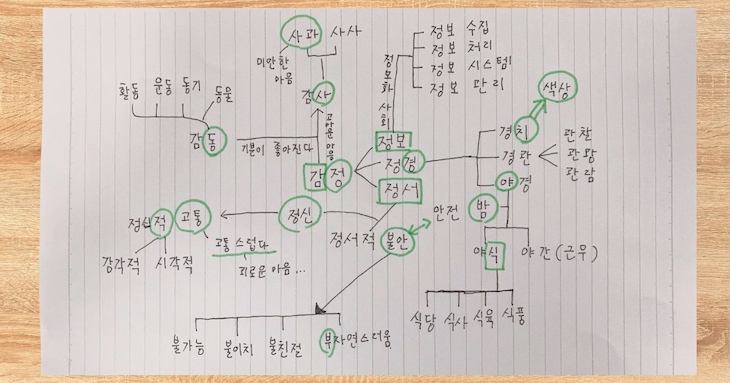 사과 사사
미안한
마음
감사
고마운 마음
활동 운동 동기 동물
감동
기분이 좋아진다
정보화 사회
정보 수집
정보 처리
정보 시스템
정보 관리
정보
감정
정경
정서
경치
색상
경관
관찰
관광
관람
야경
밤
야식
야간(근무)
식당 식사 식육 식품
정신
정서적
고통
고통스럽다
괴로운 마음...
정신적
감각적 시각적
불안
안전
불가능 불이치 불친절 부자연스러움